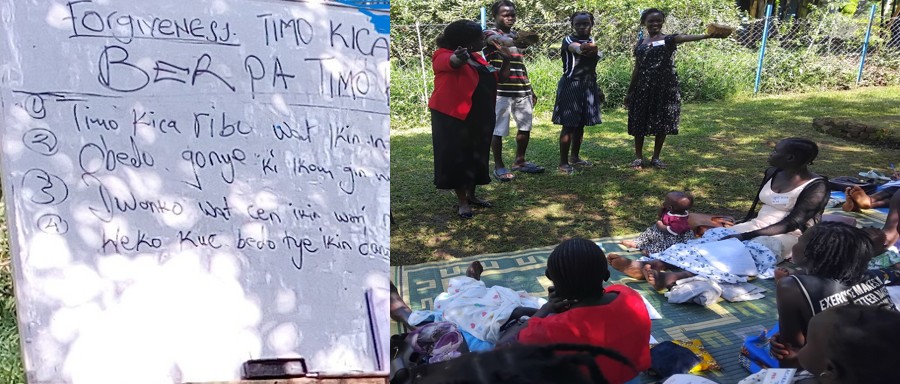 FORGIVENESS. TIMO KICA
BER PA TIMO
① Timo kica ribu wat ikin
② Obedo gonye ki ikom gin
③ Dwonko wat cen ikin wori
④ Weko kuc bedo tye ikin
EXERCISE